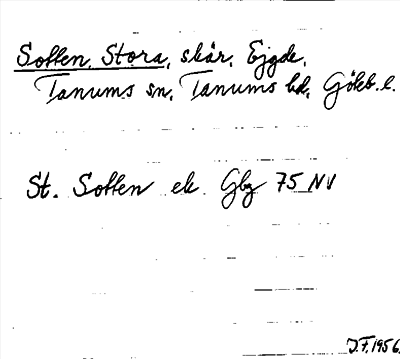 Sotten, Stora, skär, Ejgde,
Tanums sn, Tanums hd, Göteb. l.
St. Sotten ek. Gbg 75 NV
J.F. 1956